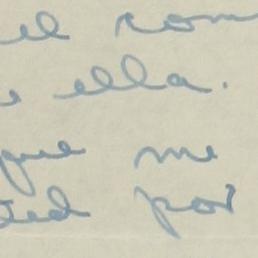 el rom
e ella.
que me
ted por